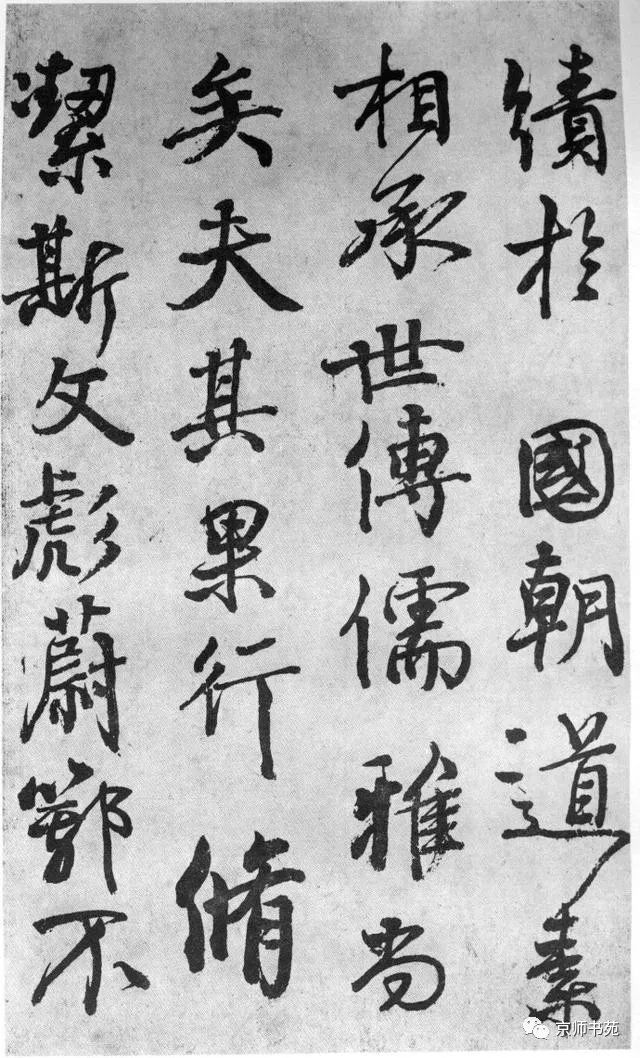 績於 國朝道素
相承世傳儒雅尚
矣夫其果行脩
潔斯文彪蔚鄂不
京师书苑